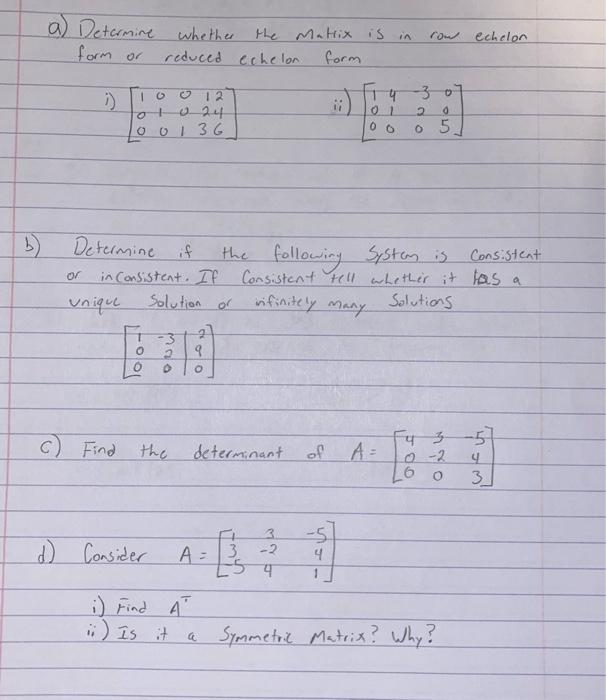 a) Determine whether the Matrix is in row echelon
form or reduced echelon form
i) [1 0 0 1 2
0 1 0 2 4
0 0 1 3 6]
ii) [1 4 -3 0
0 1 2 0
0 0 0 5]
b) Determine if the following System is Consistent
or inconsistent. If Consistent tell whether it has a
unique Solution or infinitely many Solutions
[1 -3 | 2
0 2 | 9
0 0 | 0]
c) Find the determinant of A = [4 3 -5
0 -2 4
0 0 3]
d) Consider A = [1 3 -5
3 -2 4
-5 4 1]
i) Find A^T
ii) Is it a Symmetric Matrix? Why?